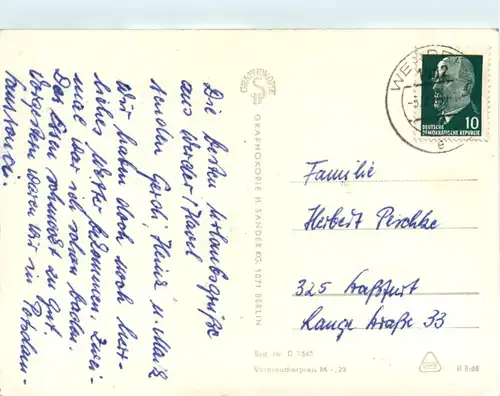 Die besten Urlaubsgrüße
aus Werder/Havel
senden Gerdi, Heinz u. Maik
Wir haben doch noch herr-
liches Wetter bekommen. Zwei-
mal war ich schon baden.
Das Essen schmeckt zu gut.
Vorgestern waren wir in Potsdam-
Sanssouci.
GRAPHOKOPIE
GRAPHOKOPIE H. SANDER KG, 1071 BERLIN
WERDER
e
10
DEUTSCHE
DEMOKRATISCHE REPUBLIK
Familie
Herbert Peschke
325 Staßfurt
Lange Straße 33
Best. Nr. D 1545
Verbraucherpreis M -,25
B 8/68